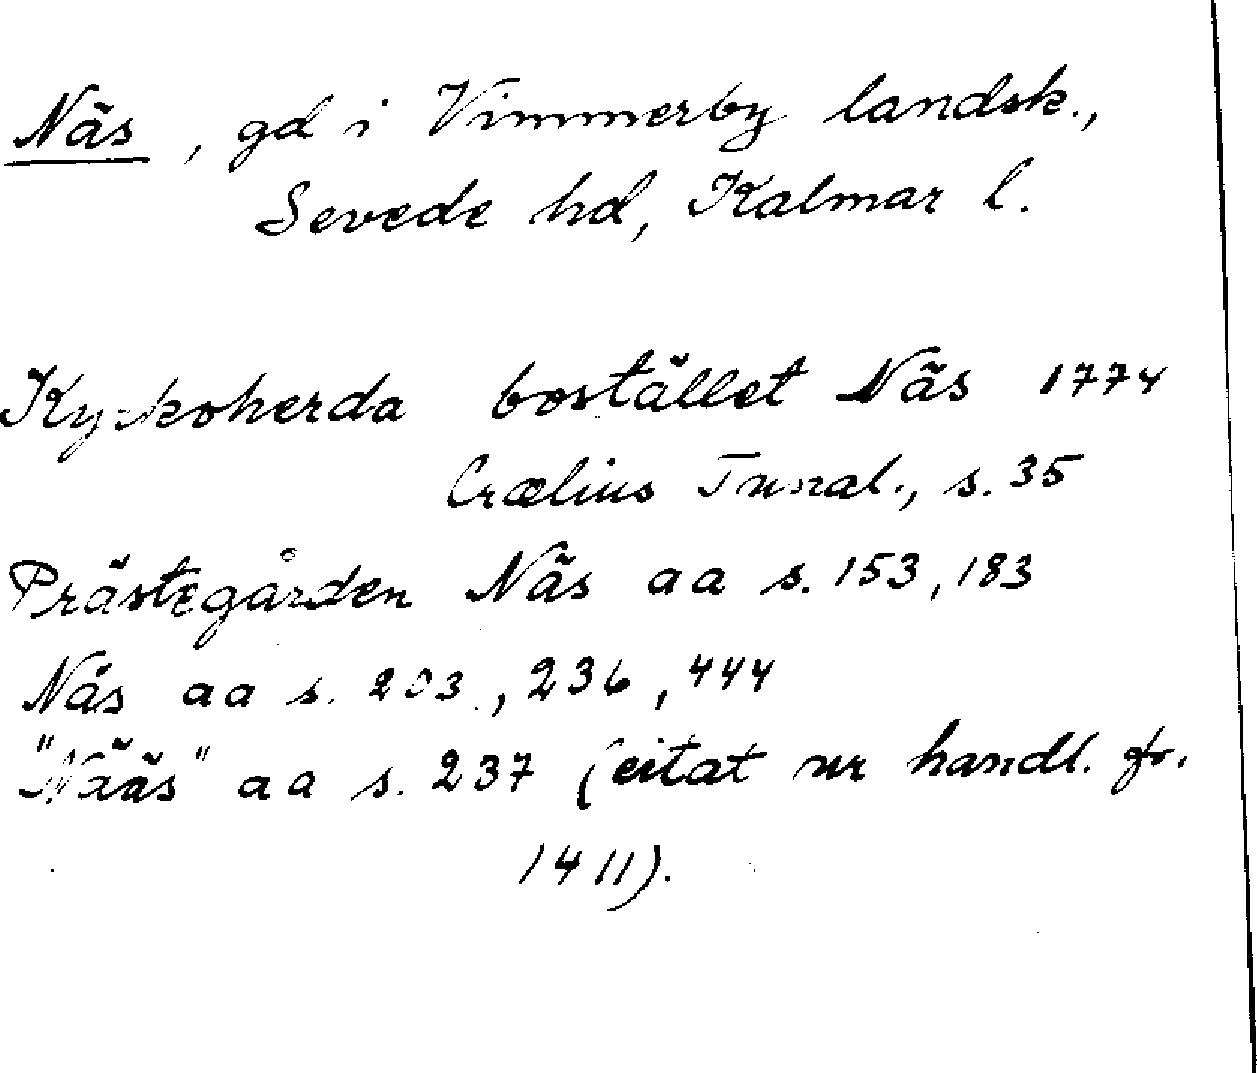 Näs, gd i Vimmerby landsk.,
Sevede hd, Kalmar l.
Kyrkoherda bostället Näs 1774
Crælius Tunal., s. 35
Prästegården Näs aa s. 153, 183
Näs aa s. 203, 236, 444
"Nääs" aa s. 237 (citat ur handl. fr.
1411).